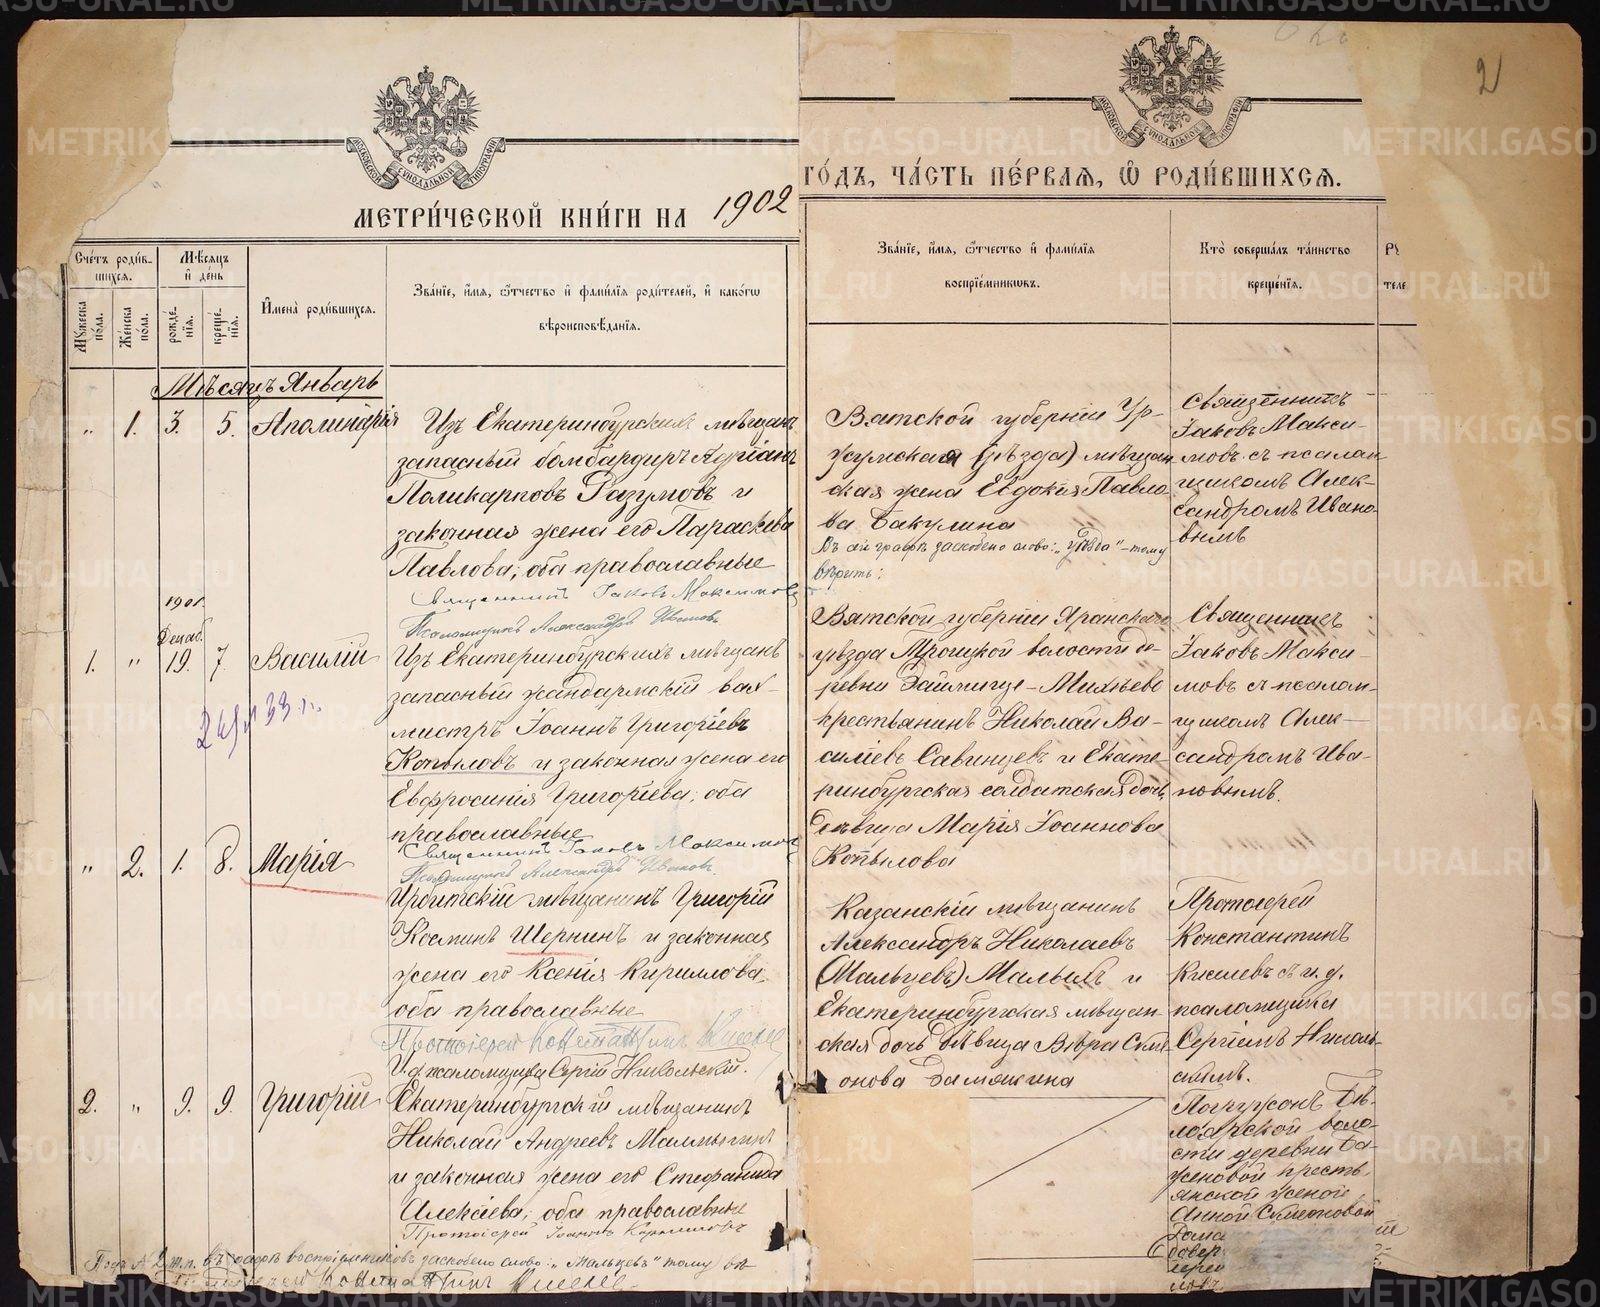 2
МЕТРИ́ЧЕСКОЙ КНИ́ГИ НА 1902
ГО́ДЪ, ЧА́СТЬ ПЕ́РВАЯ, Ѡ РОДИ́ВШИХСЯ.
Сче́тъ роди́в-
шихся.
Мѣ́сяцъ
и́ де́нь
И́мена̀ роди́вшихся.
Зва́нїе, и́мя, ѻ́тчество и́ фами́лїя роди́телей, и́ како́гѡ
вѣроисповѣ́данїя.
Му́жеска
по́ла.
Же́нска
по́ла.
рожде́-
нїя.
креще́-
нїя.
Зва́нїе, и́мя, ѻ́тчество и́ фами́лїя
воспрїе́мниковъ.
Кто̀ соверша́лъ та́инство
креще́нїя.
Мѣсяцъ Январь
" 1. 3. 5. Аполинарія
Изъ Екатеринбургскихъ мѣщанъ
запасный бомбардиръ Адріанъ
Поликарповъ Разумовъ и
законная жена его Параскева
Павлова, оба православные
Священникъ Іаковъ Максимовъ
Псаломщикъ Александръ Ивановъ
Вятской губерніи Ур-
жумская (уѣзда) мѣщан
ская жена Евдокія Павло-
ва Бакулина
Въ сей графѣ заскоблено слово: "уѣзда" - тому
вѣрить:
Священникъ
Іаковъ Макси-
мовъ съ псалом
щикомъ Алек-
сандромъ Ивано-
вымъ
1901.
Декаб.
1. " 19. 7. Василій
Изъ Екатеринбургскихъ мѣщанъ
запасный жандармскій вах-
мистръ Іоаннъ Григоріевъ
Копыловъ и законная жена его
Евфросинія Григоріева, оба
православные
Священникъ Іаковъ Максимовъ
Псаломщикъ Александръ Ивановъ.
Вятской губерніи Яранскаго
уѣзда Троицкой волости де-
ревни
крестьянинъ Николай Ва-
силіевъ Савинцевъ и Екате-
ринбургская солдатская дочь
дѣвица Марія Іоаннова
Копылова
Священникъ
Іаковъ Макси-
мовъ съ псалом-
щикомъ Алек-
сандромъ Ива-
новымъ.
" 2. 1. 8. Марія
Ирбитскій мѣщанинъ Григорій
Косминъ Шернинъ и законная
жена его Ксенія Кириллова,
оба православные
Протоіерей Константинъ
И. д. псаломщика Сергій Никольскій.
Казанскій мѣщанинъ
Александръ Николаевъ
(Мальцевъ) Малыхъ и
Екатеринбургская мѣщан-
ская дочь дѣвица Вѣра Сими-
онова Бамякина
Протоіерей
Константинъ
съ и. д.
псаломщика
Сергіемъ Николь-
скимъ.
2. " 9. 9. Григорій
Екатеринбургскій мѣщанинъ
Николай Андреевъ Маммыкинъ
и законная жена его Стефанида
Алексіева, оба православные
Протоіерей Іоаннъ
Погружонъ Бѣ-
лоярской воло-
сти деревни Ба-
женовой кресть
янской женой
Анной Симеоновой
Подъ № 2 ж.п. въ графѣ воспріемниковъ заскоблено слово: "Мальцевъ" тому вѣ